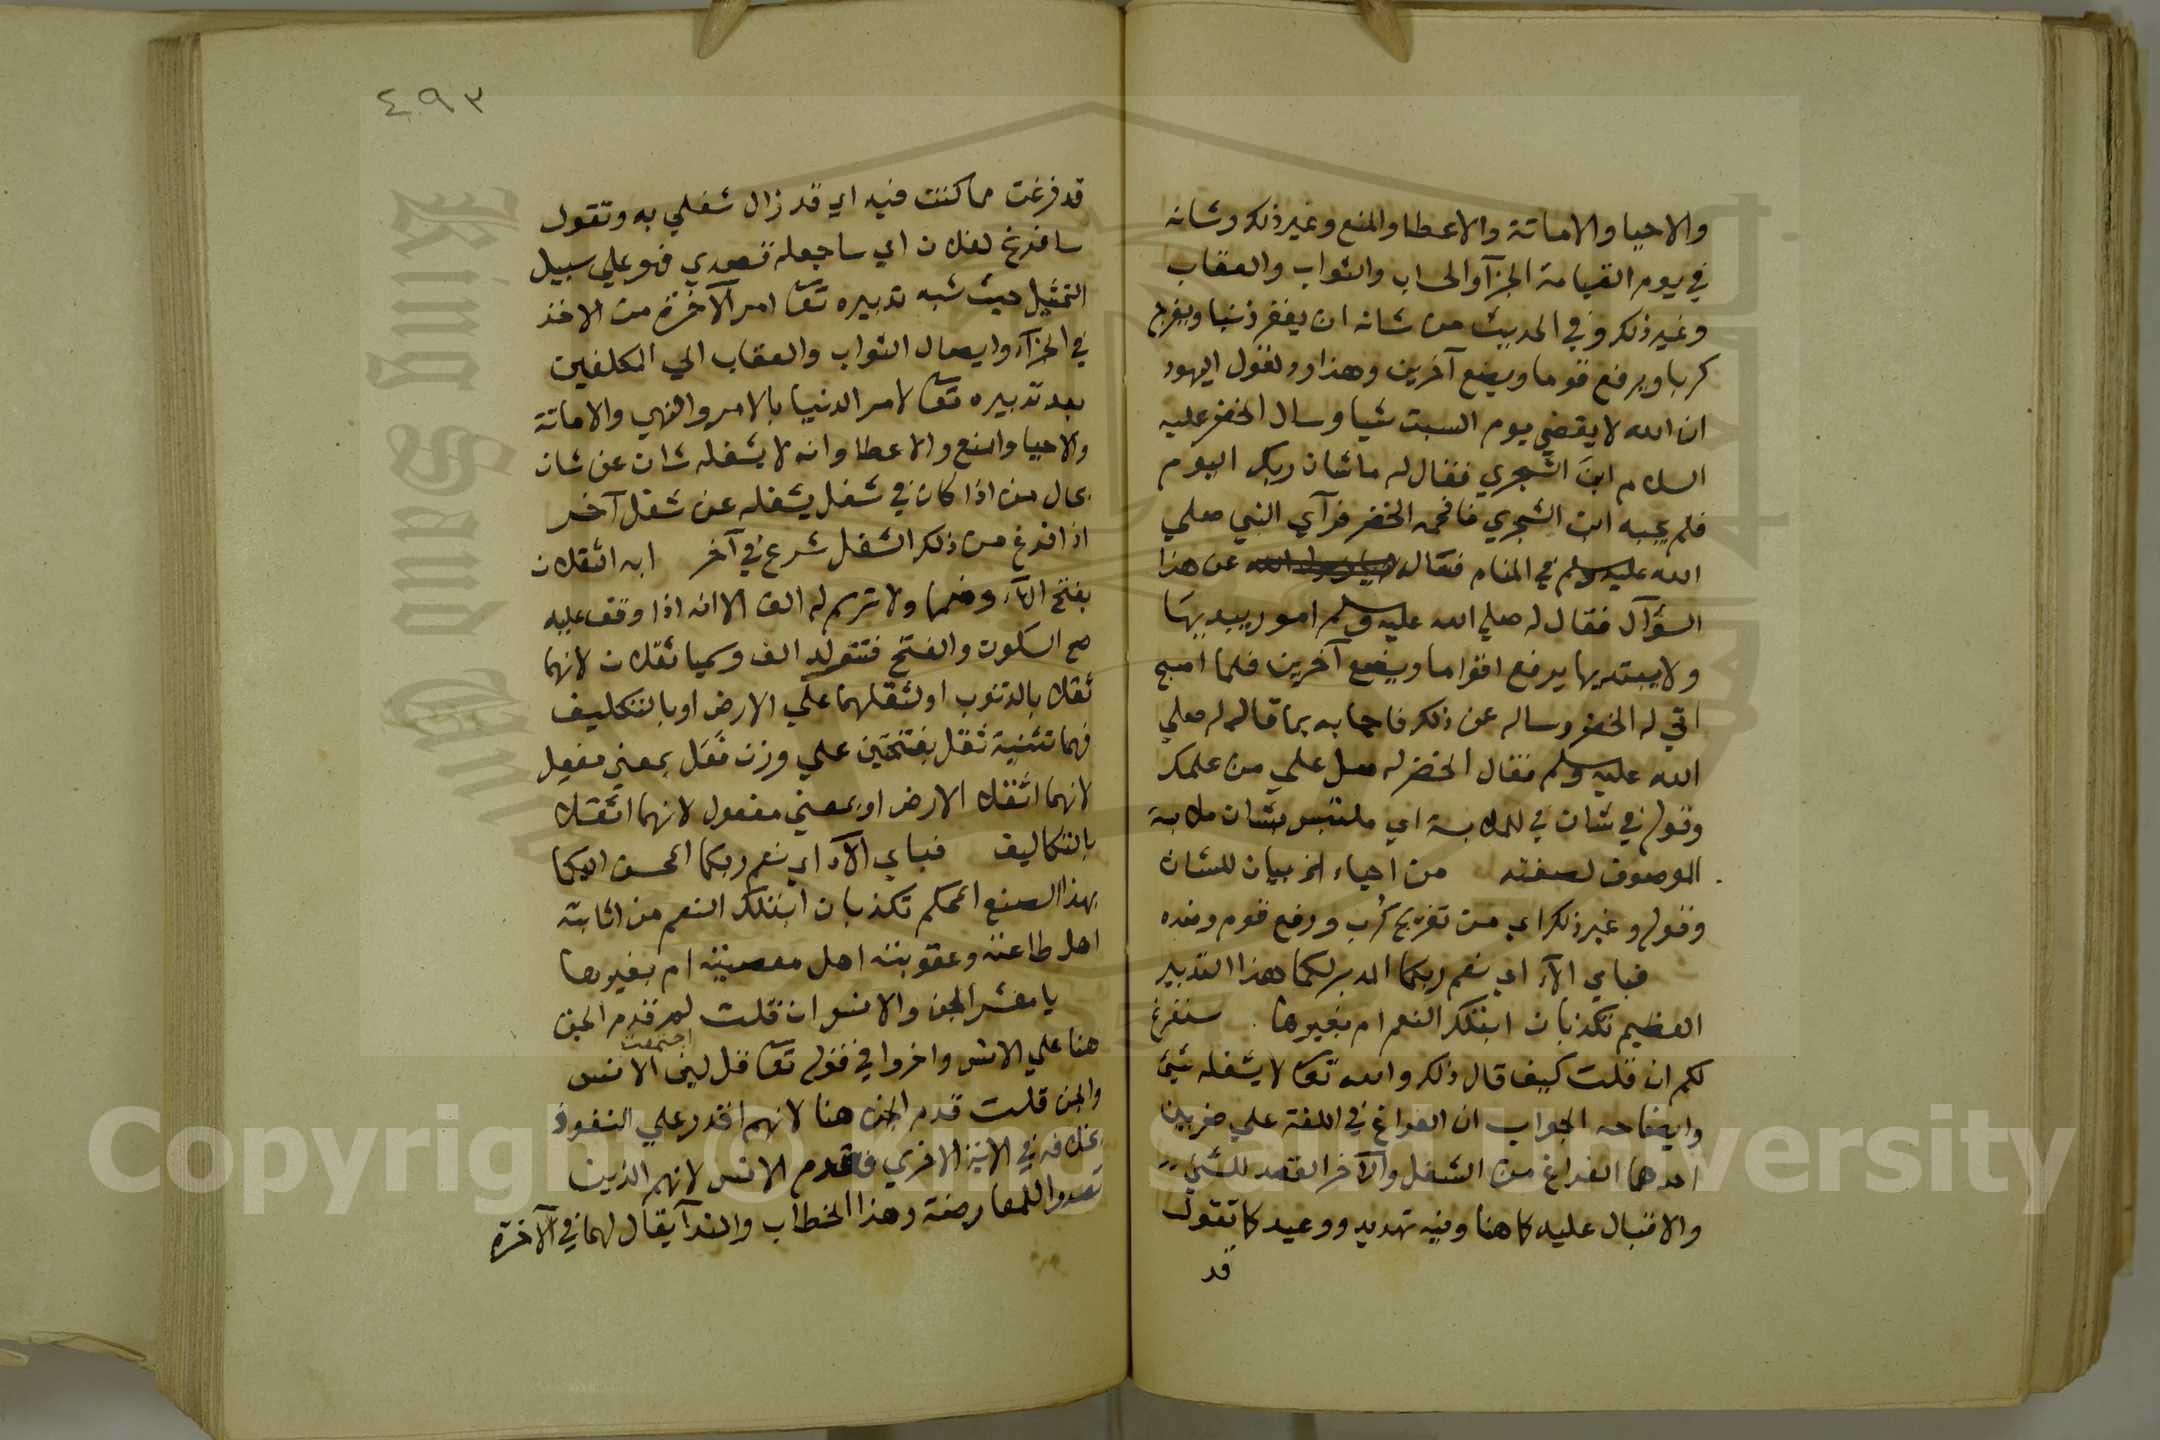 والاحيا والاماتة والاعطا والمنع وغير ذلك وشانه
في يوم القيامة الجزآ والحساب والثواب والعقاب
وغير ذلك وفي الحديث من شانه ان يغفر ذنبا ويفرج
كربا ويرفع قوما ويضع آخرين وهذا رد لقول اليهود
ان الله لا يقضي يوم السبت شيا وسال الخضر عليه
السلام ابن الشجري فقال له ما شان ربك اليوم
فلم يجبه ابن الشجري فافحمه الخضر فرآي النبي صلي
الله عليه وسلم في المنام فقال عن هذا
السؤآل فقال له صلي الله عليه وسلم امور يبديها
ولا يبتديها يرفع اقواما ويضع آخرين فلما اصبح
اتي له الخضر وساله عن ذلك فاجابه بما قاله له صلي
الله عليه وسلم فقال الخضر له صل علي من علمك
وقوله في شان في للملابسة اي ملتبس بشان ملابسة
الموصوف لصفته من احياء الخ بيان للشان
وقوله وغير ذلك اي من تفريج كرب ورفع قوم وضده
فباي الآء اي نعم ربكما المدبر لكما هذا التدبير
العظيم تكذبان ابتلك النعم ام بغيرها سنفرغ
لكم ان قلت كيف قال ذلك والله تعا لا يشغله شيئ
وايضاحه الجواب ان الفراغ في اللغة علي ضربين
احدهما الفراغ من الشغل والآخر القصد للشيئ
والاقبال عليه كما هنا وفيه تهديد ووعيد كما تقول
قد
٤٩٣
قد فرغت مما كنت فيه اي قد زال شغلي به وتقول
سافرغ لفلان اي ساجعله قصدي فهو علي سبيل
التمثيل حيث شبه تدبيره تعا امر الآخرة من الاخذ
في الجزآء وايصال الثواب والعقاب الي المكلفين
بعد تدبيره تعا لامر الدنيا بالامر والنهي والاماتة
والاحيا والمنع والاعطا وانه لا يشغله شان عن شان
بحال من اذا كان في شغل يشغله عن شغل آخر
اذا فرغ من ذلك الشغل شرع في آخر ايه الثقلان
بفتح الهآء وضمها ولا ترسم له الف الا انه اذا وقف عليه
صح السكون والفتح فتتولد الف وسميا ثقلان لانهما
ثقلا بالذنوب او لثقلهما علي الارض او بالتكليف
فهما تثنية ثقل بفتحتين علي وزن فعل بمعني مفعل
لانهما اثقلا الارض او بمعني مفعول لانهما اثقلا
بالتكاليف فباي الآء اي نعم ربكما المحسن اليكما
بهذا الصنع المحكم تكذبان ابتلك النعم من اثابة
اهل طاعته وعقوبته اهل معصيته ام بغيرها
يا معشر الجن والانس ان قلت لم قدم الجن
هنا علي الانس واخروا في قوله تعا قل لين اجتمعت الانس
والجن قلت قدم الجن هنا لانهم اقدر علي النفوذ
بخلافه في الاية الاخري فاقدم الانس لانهم الذين
تصدوا للمعارضة وهذا الخطاب والندآ يقال لهما في الآخرة